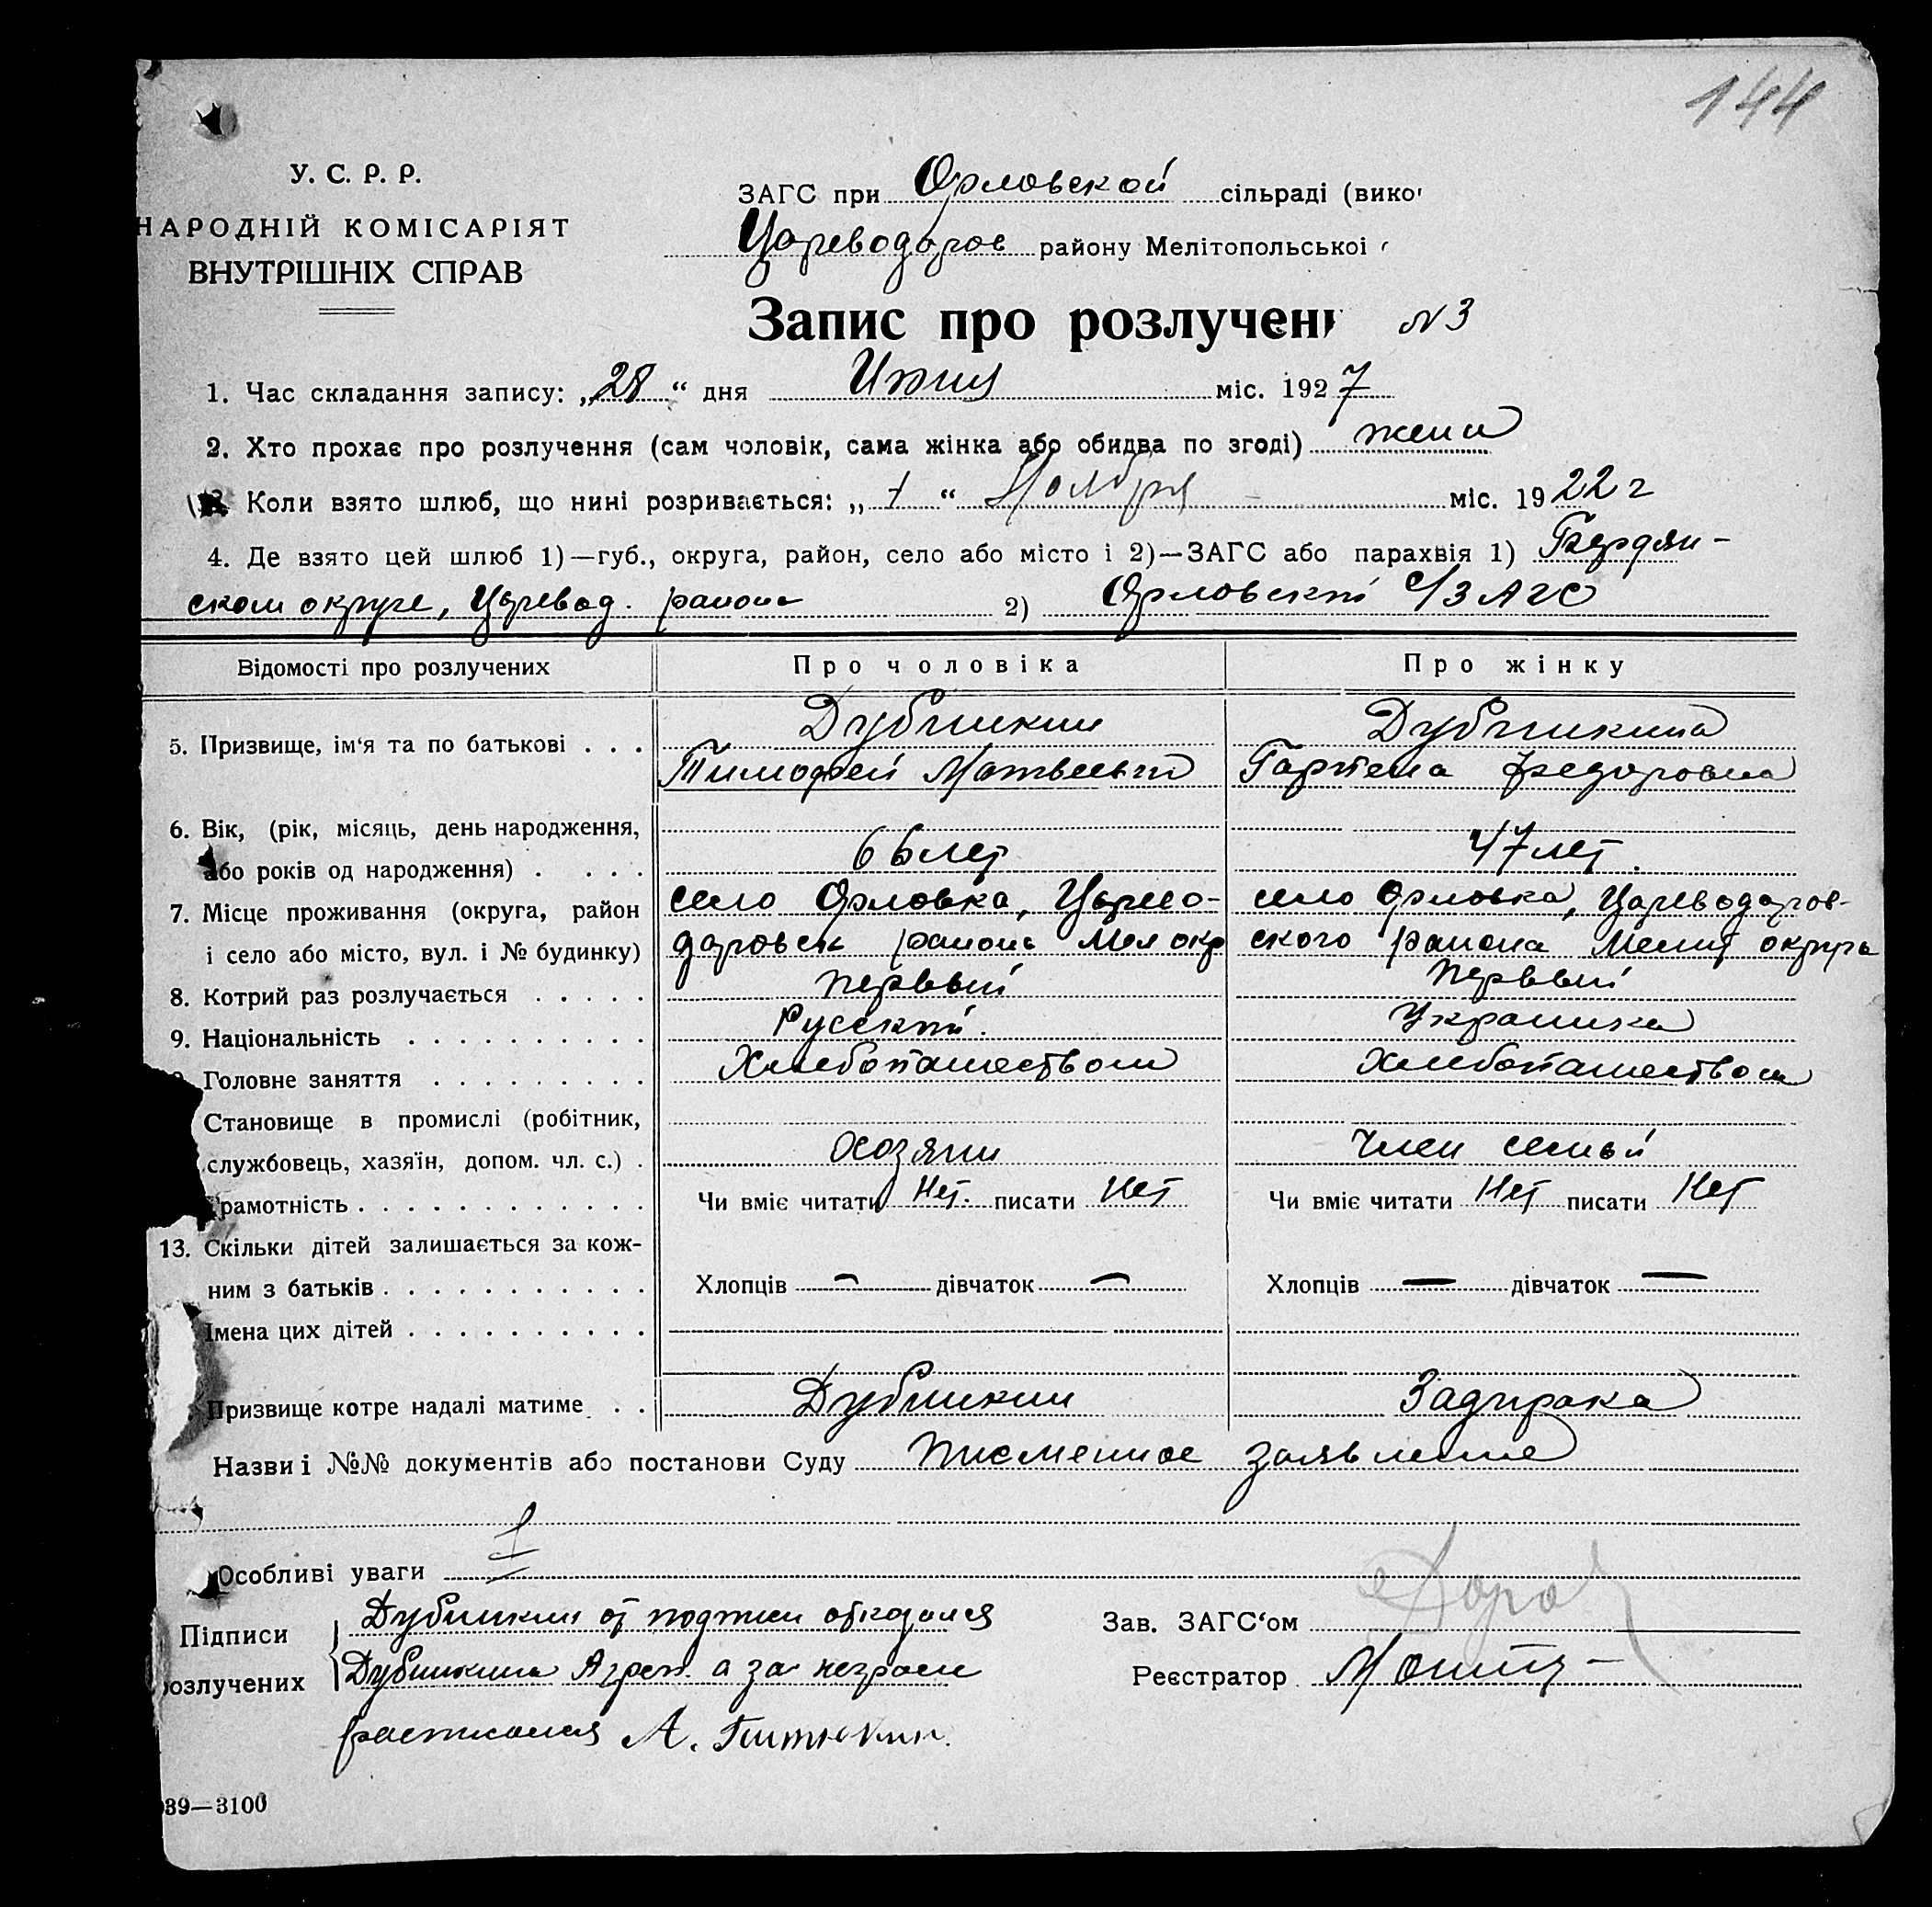 144
У. С. Р. Р.
НАРОДНІЙ КОМІСАРІЯТ
ВНУТРІШНІХ СПРАВ
ЗАГС при Орловской сільраді (вико
Цареводаров району Мелітопольської
Запис про розлучен
№ 3
1. Час складання запису: „28“ дня міс. 1927
2. Хто прохає про розлучення (сам чоловік, сама жінка або обидва по згоді) жена
Коли взято шлюб, що нині розривається: „1“ Ноября міс. 1922 г
4. Де взято цей шлюб 1)—губ., округа, район, село або місто і 2)—ЗАГС або парахвія 1) Бердян-
ском округе, Царевод. района 2) Орловский с/ЗАГС
Відомості про розлучених Про чоловіка Про жінку
5. Призвище, ім‘я та по батькові . . .
Дубинкин
Тимофей Матвеевич
Дубинкина
Федоровна
6. Вік, (рік, місяць, день народження,
або років од народження) . . . . 66 лет 47 лет.
7. Місце проживання (округа, район село Орловка, Царево- село Орловка, Цареводаров-
і село або місто, вул. і № будинку) даровск района Мел окр ского района Мелит округа
8. Котрий раз розлучається . . . . . первый первый
9. Національність . . . . . . . . . . Русский. Украинка
Головне заняття . . . . . . . . . Хлебопашеством Хлебопашеством
Становище в промислі (робітник,
службовець, хазяїн, допом. чл. с.) . хозяин член семьи
рамотність . . . . . . . . . . . . Чи вміє читати Нет. писати Нет Чи вміє читати Нет писати Нет
13. Скільки дітей залишається за кож-
ним з батьків . . . . . . . . . . . Хлопців — дівчаток — Хлопців — дівчаток —
Імена цих дітей . . . . . . . . . .
Призвище котре надалі матиме . . Дубинкин Задирака
Назви і №№ документів або постанови Суду письменное заявление
Особливі уваги
Підписи
розлучених
Дубинкин от подписи отказался
Дубинкина Агреп. а за неграм
расписался А.
Зав. ЗАГС‘ом
Реєстратор
39—3100